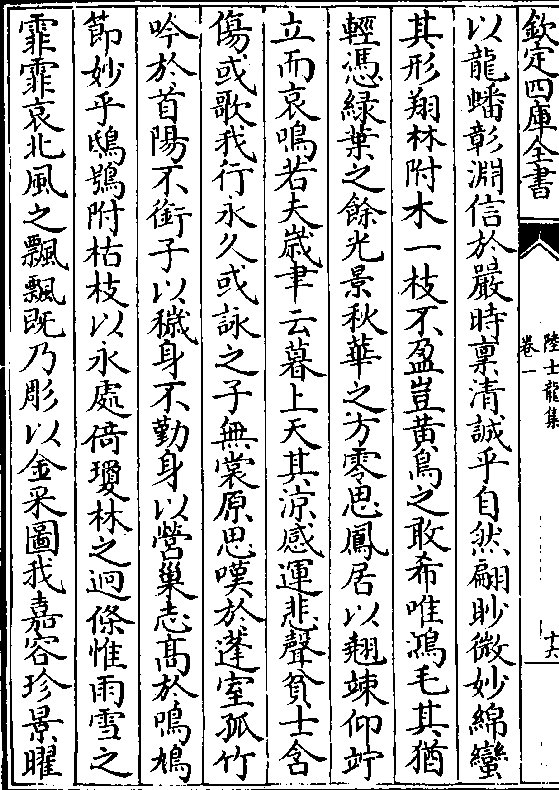 欽定四庫全書
陸士龍集
卷一
十六
以龍蟠彰淵信於嚴時禀清誠乎自然翩眇微妙綿蠻
其形翔林附木一枝不盈豈黃鳥之敢希唯鴻毛其猶
輕憑緑葉之餘光景秋華之方零思鳳居以翹竦仰竚
立而哀鳴若夫嵗聿云暮上天其涼感運悲聲貧士含
傷或歌我行永久或詠之子無裳原思嘆於蓬室孤竹
吟於首陽不銜子以穢身不勤身以營巢志髙於鳴鳩
節妙乎鴟鴞附枯枝以永處倚瓊林之迥條惟雨雪之
霏霏哀北風之飄飄既乃彫以金采圖我嘉容珍景曜